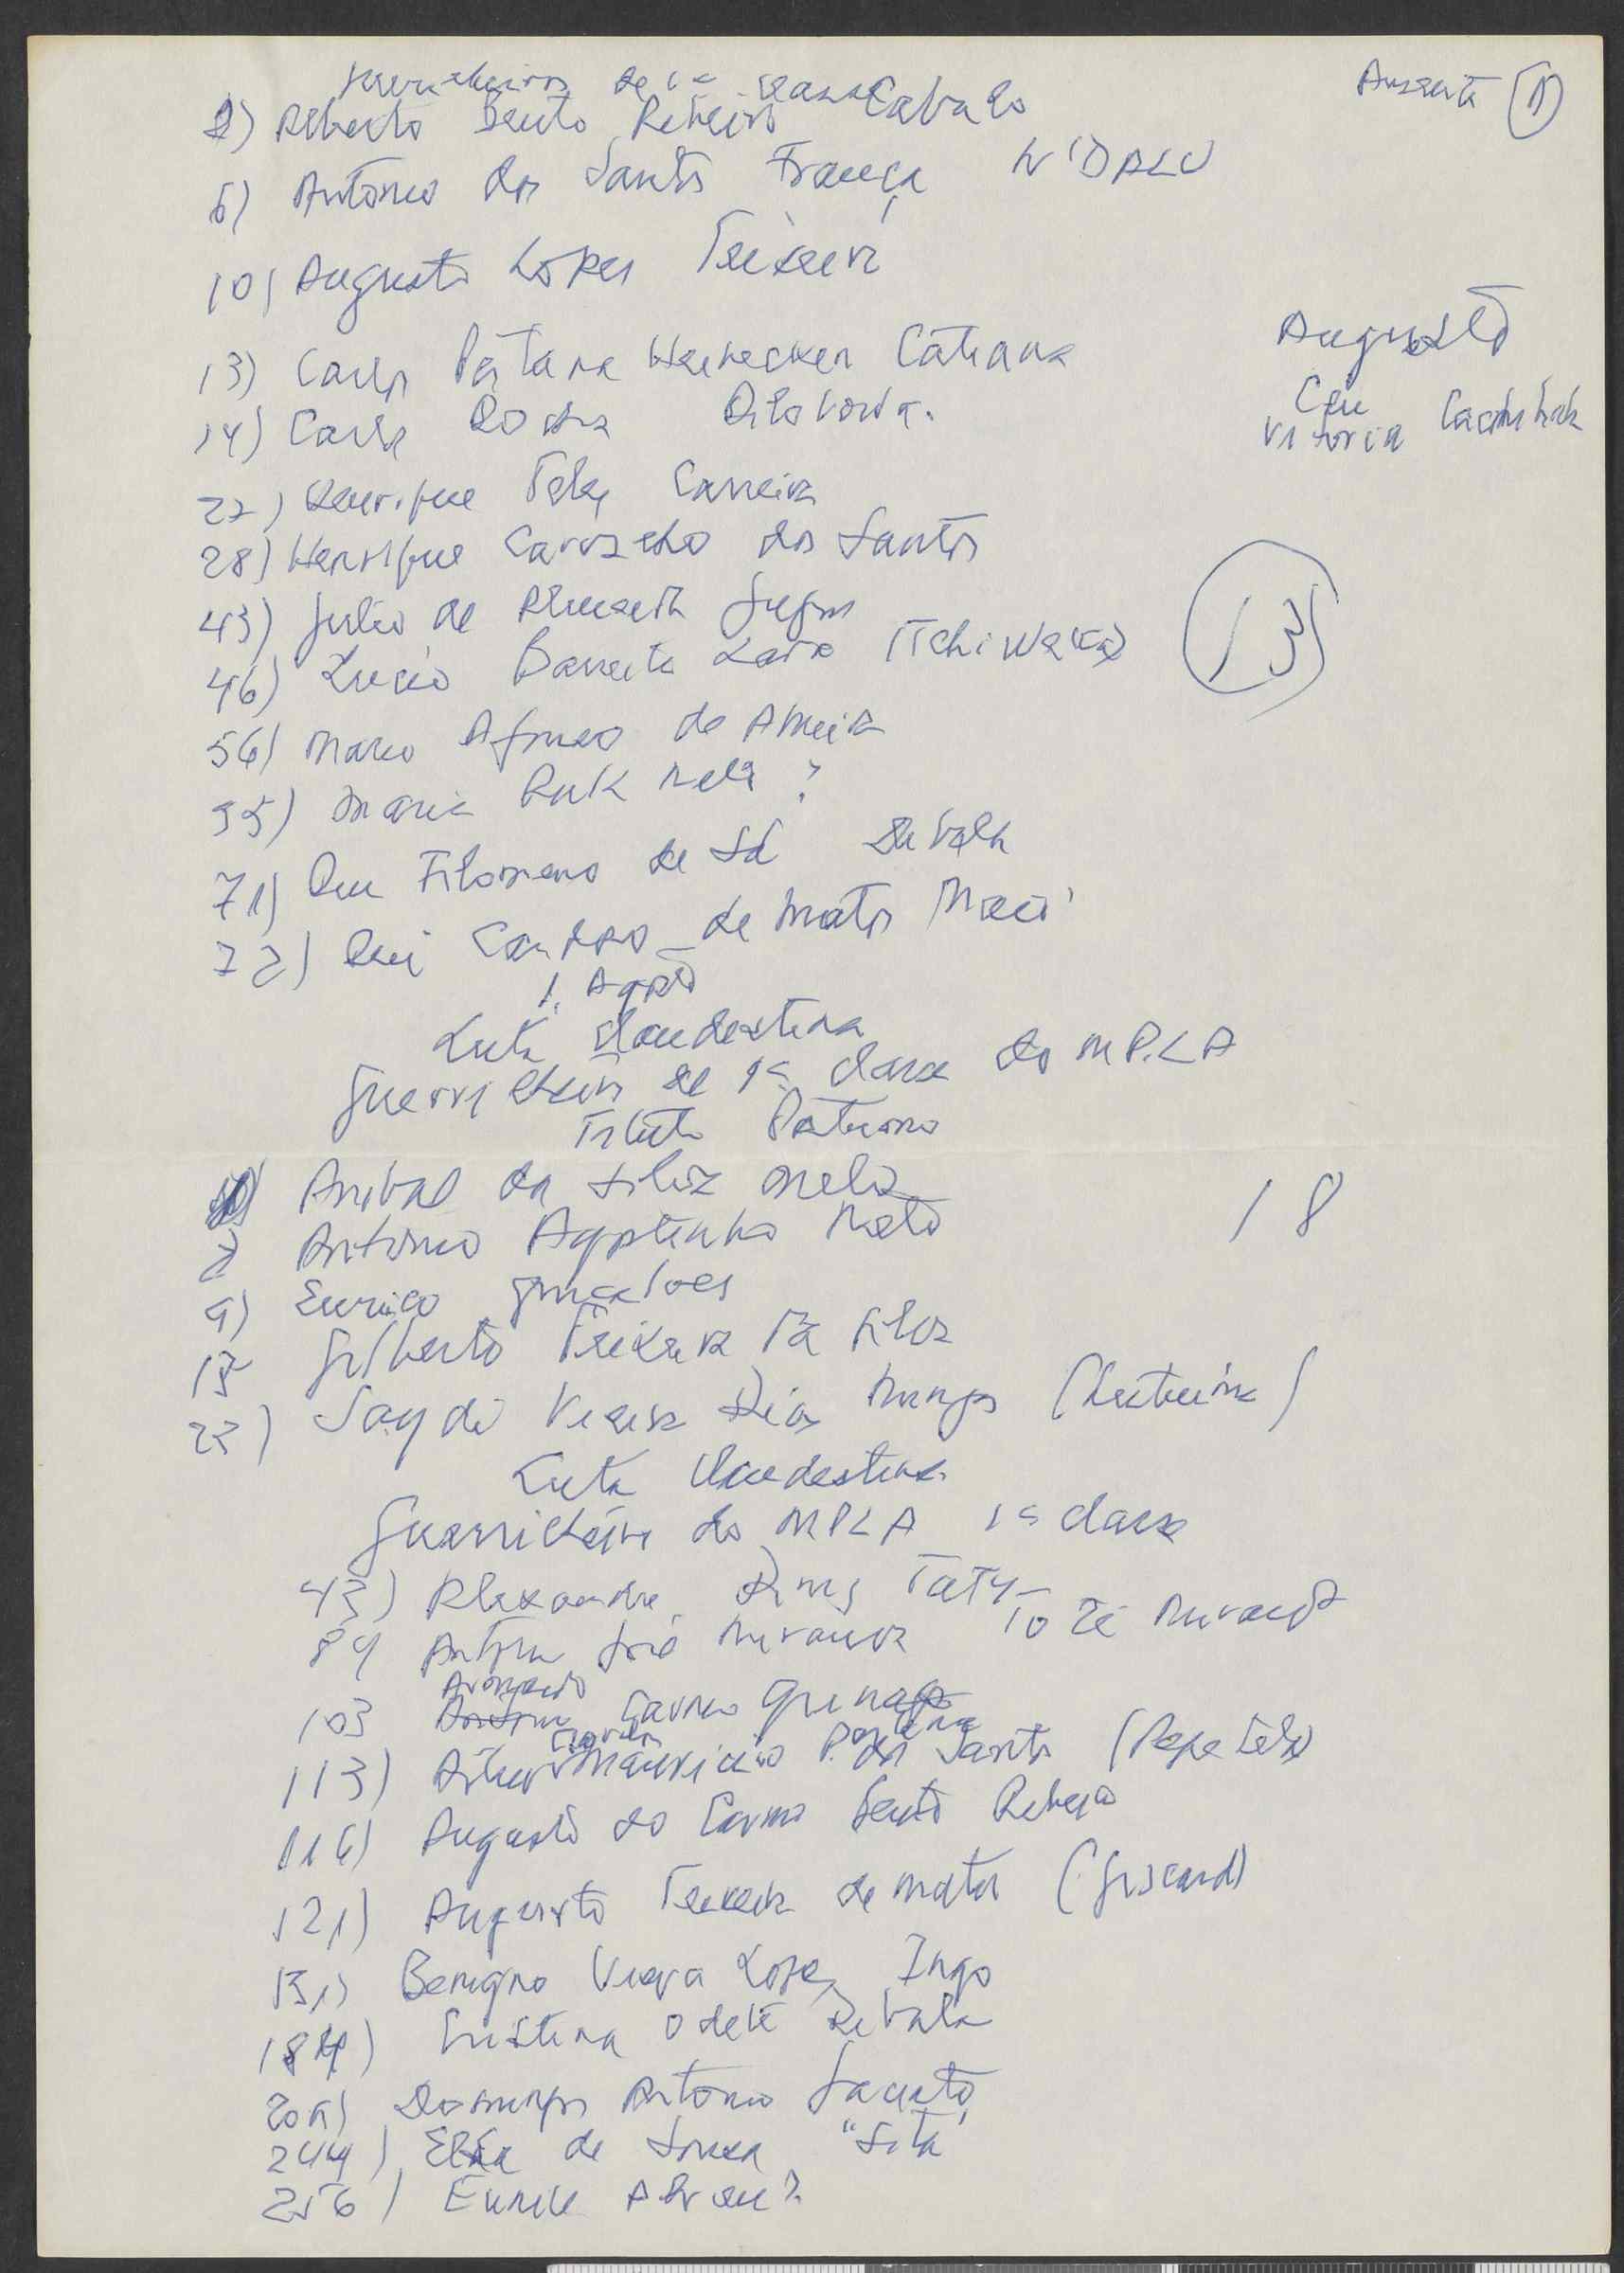 de 1ª
Ausente (1)
2) Alberto Bento Ribeiro Cabulo
6) Antonio dos Santos França N'DALU
10) Augusto Lopes Teixeira
13) Carlos Pestana Heinecken Catiana
Augusto
14) Carlos Rocha Dilolwa.
Ceu
Vitoria
27) Henrique Teles Carreira
28) Henrique Carvalho dos Santos
43) Julio de Almeida Jujou
46) Lucio Barreto Lara Tchiweka
(13)
56) Mario Afonso de Almeida
55) Maria Ruth Neto ?
71) Rui Filomeno de Sá Dibala
72) Rui Candeas de Matos Macié
1. Agosto
Luta Clandestina
Guerrilheiros de 1ª classe do MPLA
Patriono
1) Anibal da Silva Melo
18
2) Antonio Agostinho Neto
9) Eurico Gonçalves
17 Gilberto Teixeira da Silva
22) Saydi Vieira Dias Mingas
Luta Clandestina
Guerrilheiros do MPLA 1ª classe
43) Alexandre Taty
84 Antonio José Miranda To Zé Miranda
103 Carmo
113) Artur Carlos Mauricio Pestana dos Santos (Pepetela)
116) Augusto do Carmo Bento Ribeiro
121) Augusto Teixeira de Matos (Giscard)
131) Benigno Vieira Lopes Ingo
184) Cristina Odete Dibala
205) Domingos Antonio
244) de Sousa "Sita"
256) Eunice Abreu?